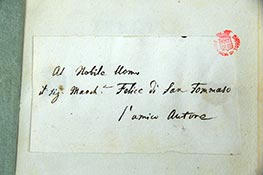 Al Nobile Uomo
il Sig. March.e Felice di San Tommaso
l'amico Autore